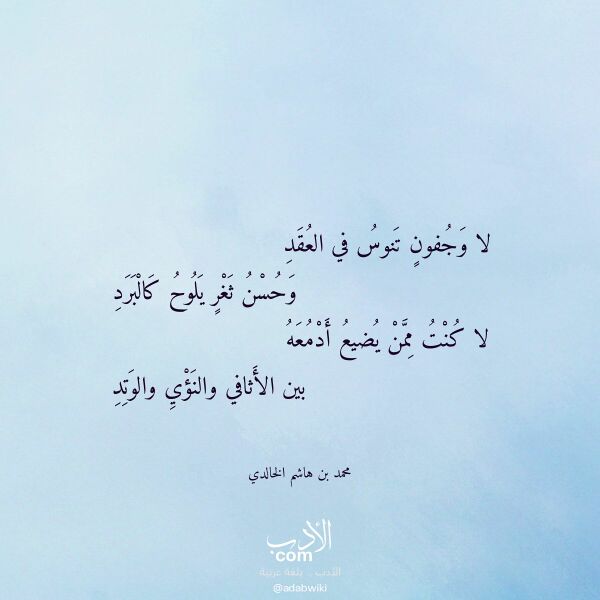 لا وَجُفونٍ تَنوسُ في العُقَدِ
وَحُسْنُ ثَغْرٍ يَلُوحُ كَالْبَرَدِ
لا كُنْتُ مِمَّنْ يُضيعُ أَدْمُعَهُ
بين الأَثافي والنَؤْيِ والوَتِدِ
محمد بن هاشم الخالدي
الأدب
com
الأدب .. بلغة عربية
@adabwiki